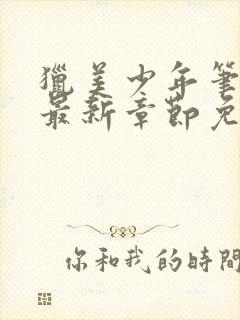 獵美少年筆
最新章節免
你和我的時間